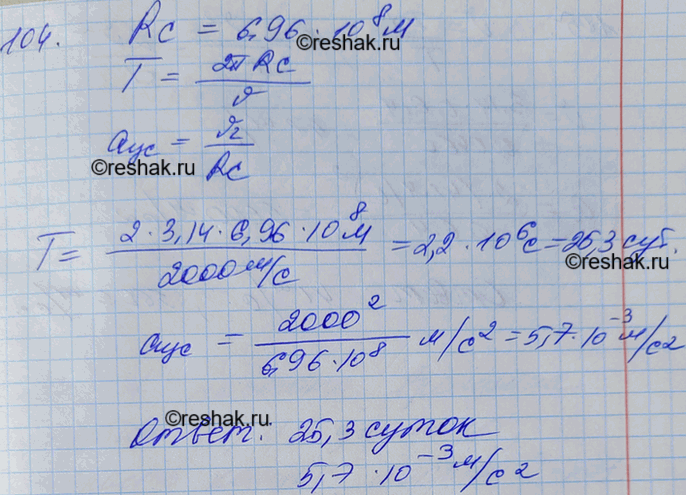 104. Rc = 6,96 · 10⁸ м
©reshak.ru
T = 2πRc / υ
aцс = υ² / Rc
©reshak.ru
T = 2 · 3,14 · 6,96 · 10⁸ м / 2000 м/с = 2,2 · 10⁶ с = 25,3 сут.
aцс = 2000² / 6,96 · 10⁸ м/с² = 5,7 · 10⁻³ м/с²
©reshak.ru
Ответ: 25,3 суток
5,7 · 10⁻³ м/с²